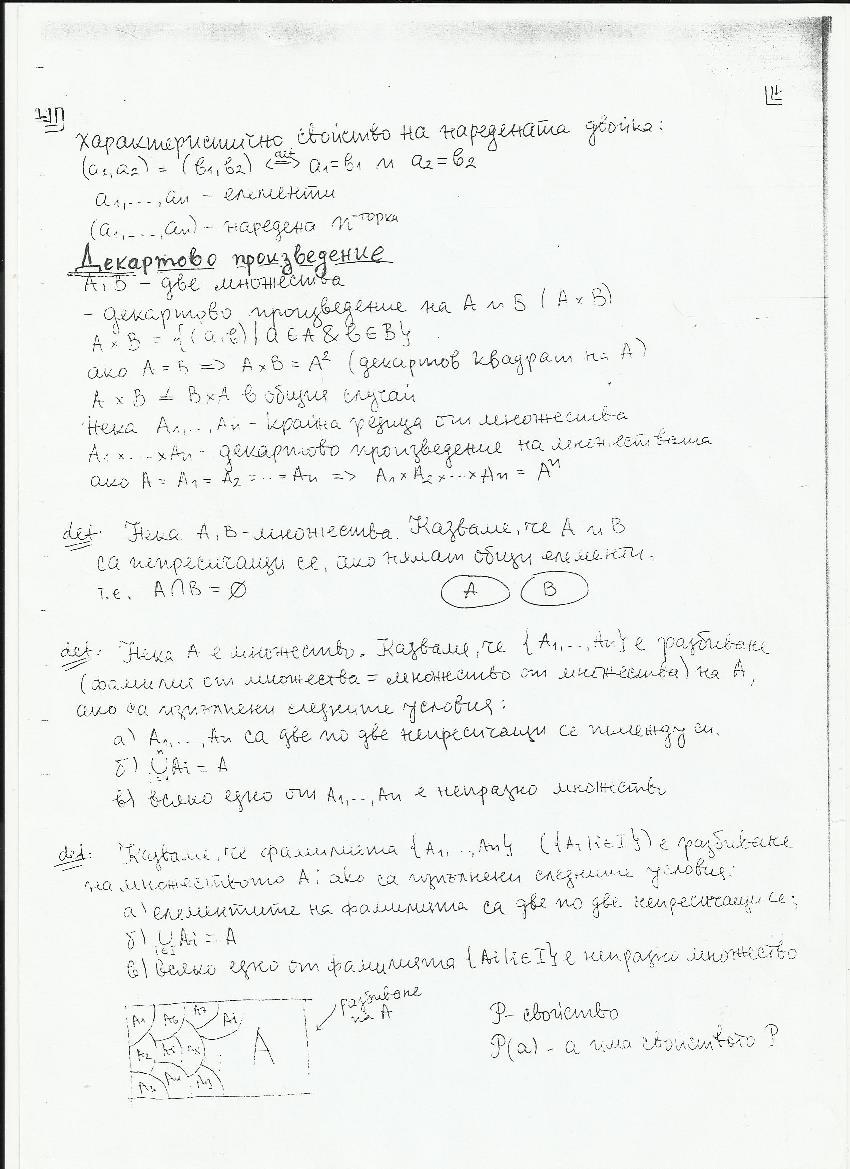 Характеристично свойство на наредената двойка:
(a₁,a₂) = (b₁,b₂) <=def=> a₁=b₁ и a₂=b₂
a₁,...,aₙ - елементи
(a₁,...,aₙ) - наредена n-торка
Декартово произведение
A, B - две множества
- декартово произведение на A и B (A × B)
A × B = {(a,b) | a ∈ A & b ∈ B}
ако A = B => A × B = A² (декартов квадрат на A)
A × B ≠ B × A в общия случай
Нека A₁,..,Aₙ - крайна редица от множества
A₁×...×Aₙ - декартово произведение на множествата
ако A = A₁ = A₂ = ... = Aₙ => A₁×A₂×...×Aₙ = Aⁿ
def: Нека A, B - множества. Казваме, че A и B
са непресичащи се, ако нямат общи елементи.
т.е. A∩B = ∅
A B
def: Нека A е множество. Казваме, че {A₁,...,Aₙ} е разбиване
(фамилия от множества = множество от множества) на A,
ако са изпълнени следните условия:
а) A₁,..,Aₙ са две по две непресичащи се помежду си.
б) ⋃Ai = A
в) всяко едно от A₁,..,Aₙ е непразно множество
def: Казваме, че фамилията {A₁,..,Aₙ} ({Ai | i∈I}) е разбиване
на множеството A, ако са изпълнени следните условия:
а) елементите на фамилията са две по две непресичащи се;
б) ⋃Ai = A
i∈I
в) всяко едно от фамилията {Ai | i∈I} е непразно множество
разбиване
на A
A₁ A₆ A₇ Ai
A₂ A₅
A
P - свойство
P(a) - a има свойството P